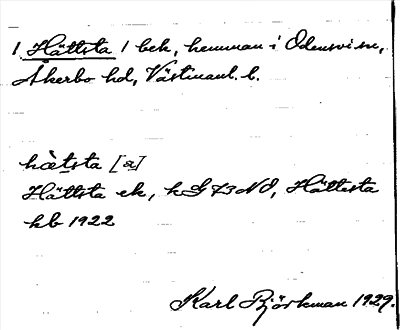 1 Hättsta / bek, hemman i Odensvi sn,
Åkerbo hd, Västmanl. l.
hætsta [a]
Hättsta ek, kG 73 NO, Hättesta
kb 1922
Karl Björkman 1929.